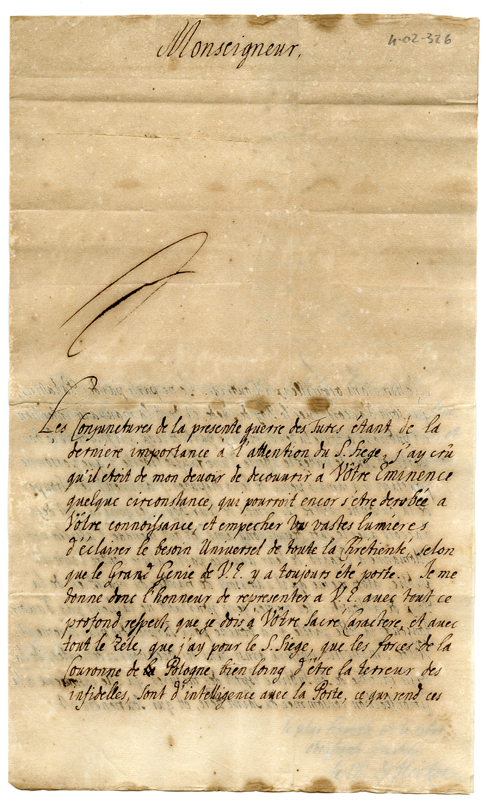 Monseigneur,
4-02-326
Les Conjunctures de la presente guerre des Turcs étant de la
derniere importance à l'attention du S. Siege, j'ay crû
qu'il étoit de mon devoir de decouvrir à Vôtre Eminence
quelque circonstance, qui pourroit encor s'etre derobée a
Vôtre connoissance, et empecher vos vastes lumieres
d'éclairer le besoin Universel de toute la Chrétienté, selon
que le Grand Genie de V.E. y a toujours été porté. Je me
donne donc l'honneur de representer à V.E. avec tout ce
profond respect, que je dois à Vôtre Sacre Caractere, et avec
tout le Zele, que j'ay pour le S. Siege, que les forces de la
Couronne de Pologne, bien loing d'être la terreur des
infidelles, sont d'intelligence avec la Porte, ce qui rend ces